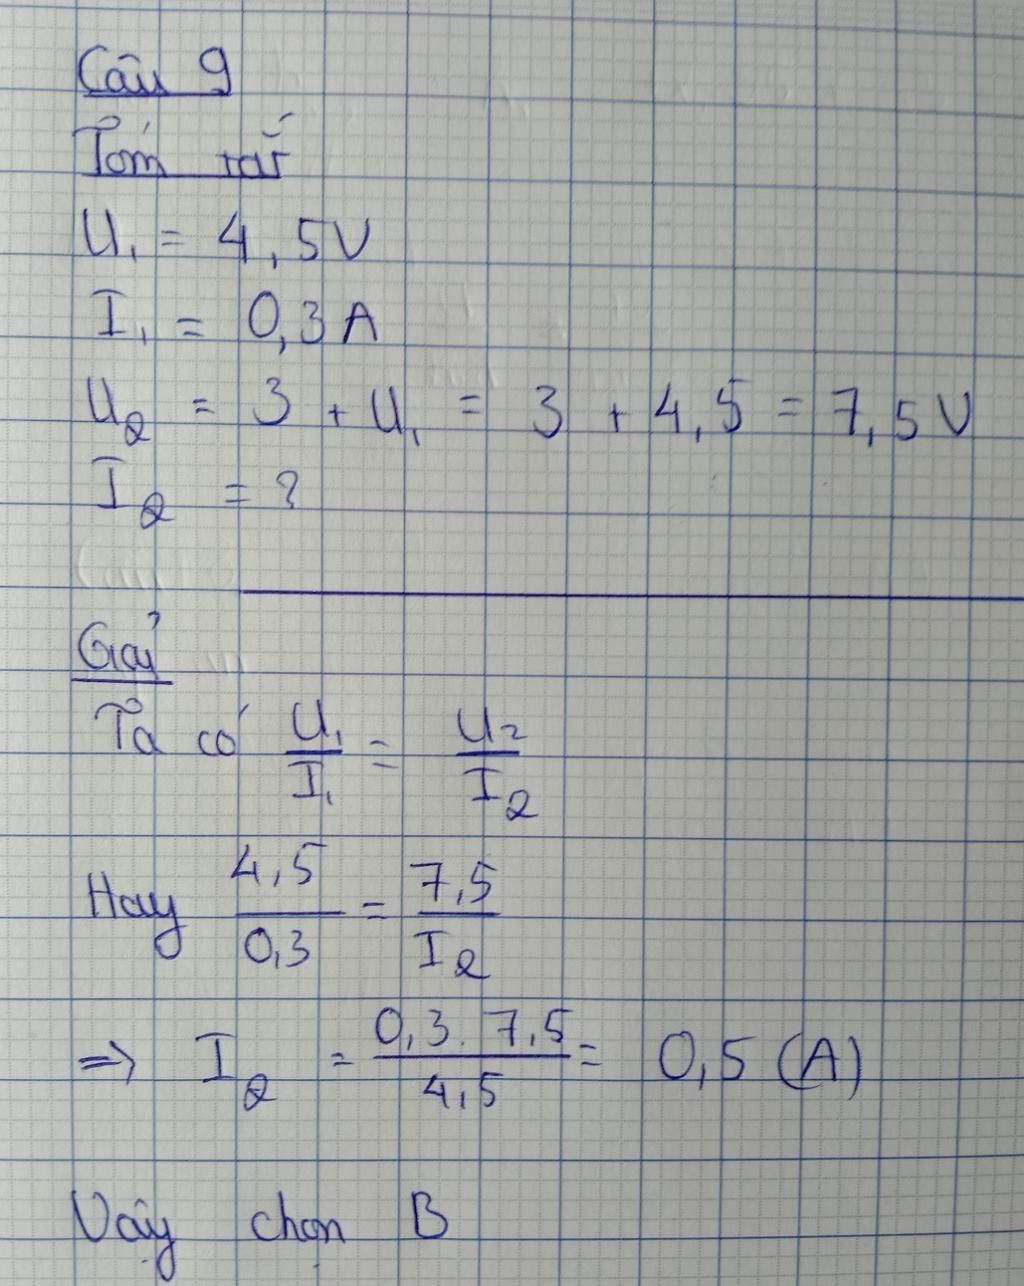 Câu 9
Tóm tắt
U₁ = 4,5V
I₁ = 0,3A
U₂ = 3 + U₁ = 3 + 4,5 = 7,5V
I₂ = ?
Giải
Ta có U₁/I₁ = U₂/I₂
Hay 4,5/0,3 = 7,5/I₂
=> I₂ = 0,3.7,5/4,5 = 0,5 (A)
Vậy chọn B